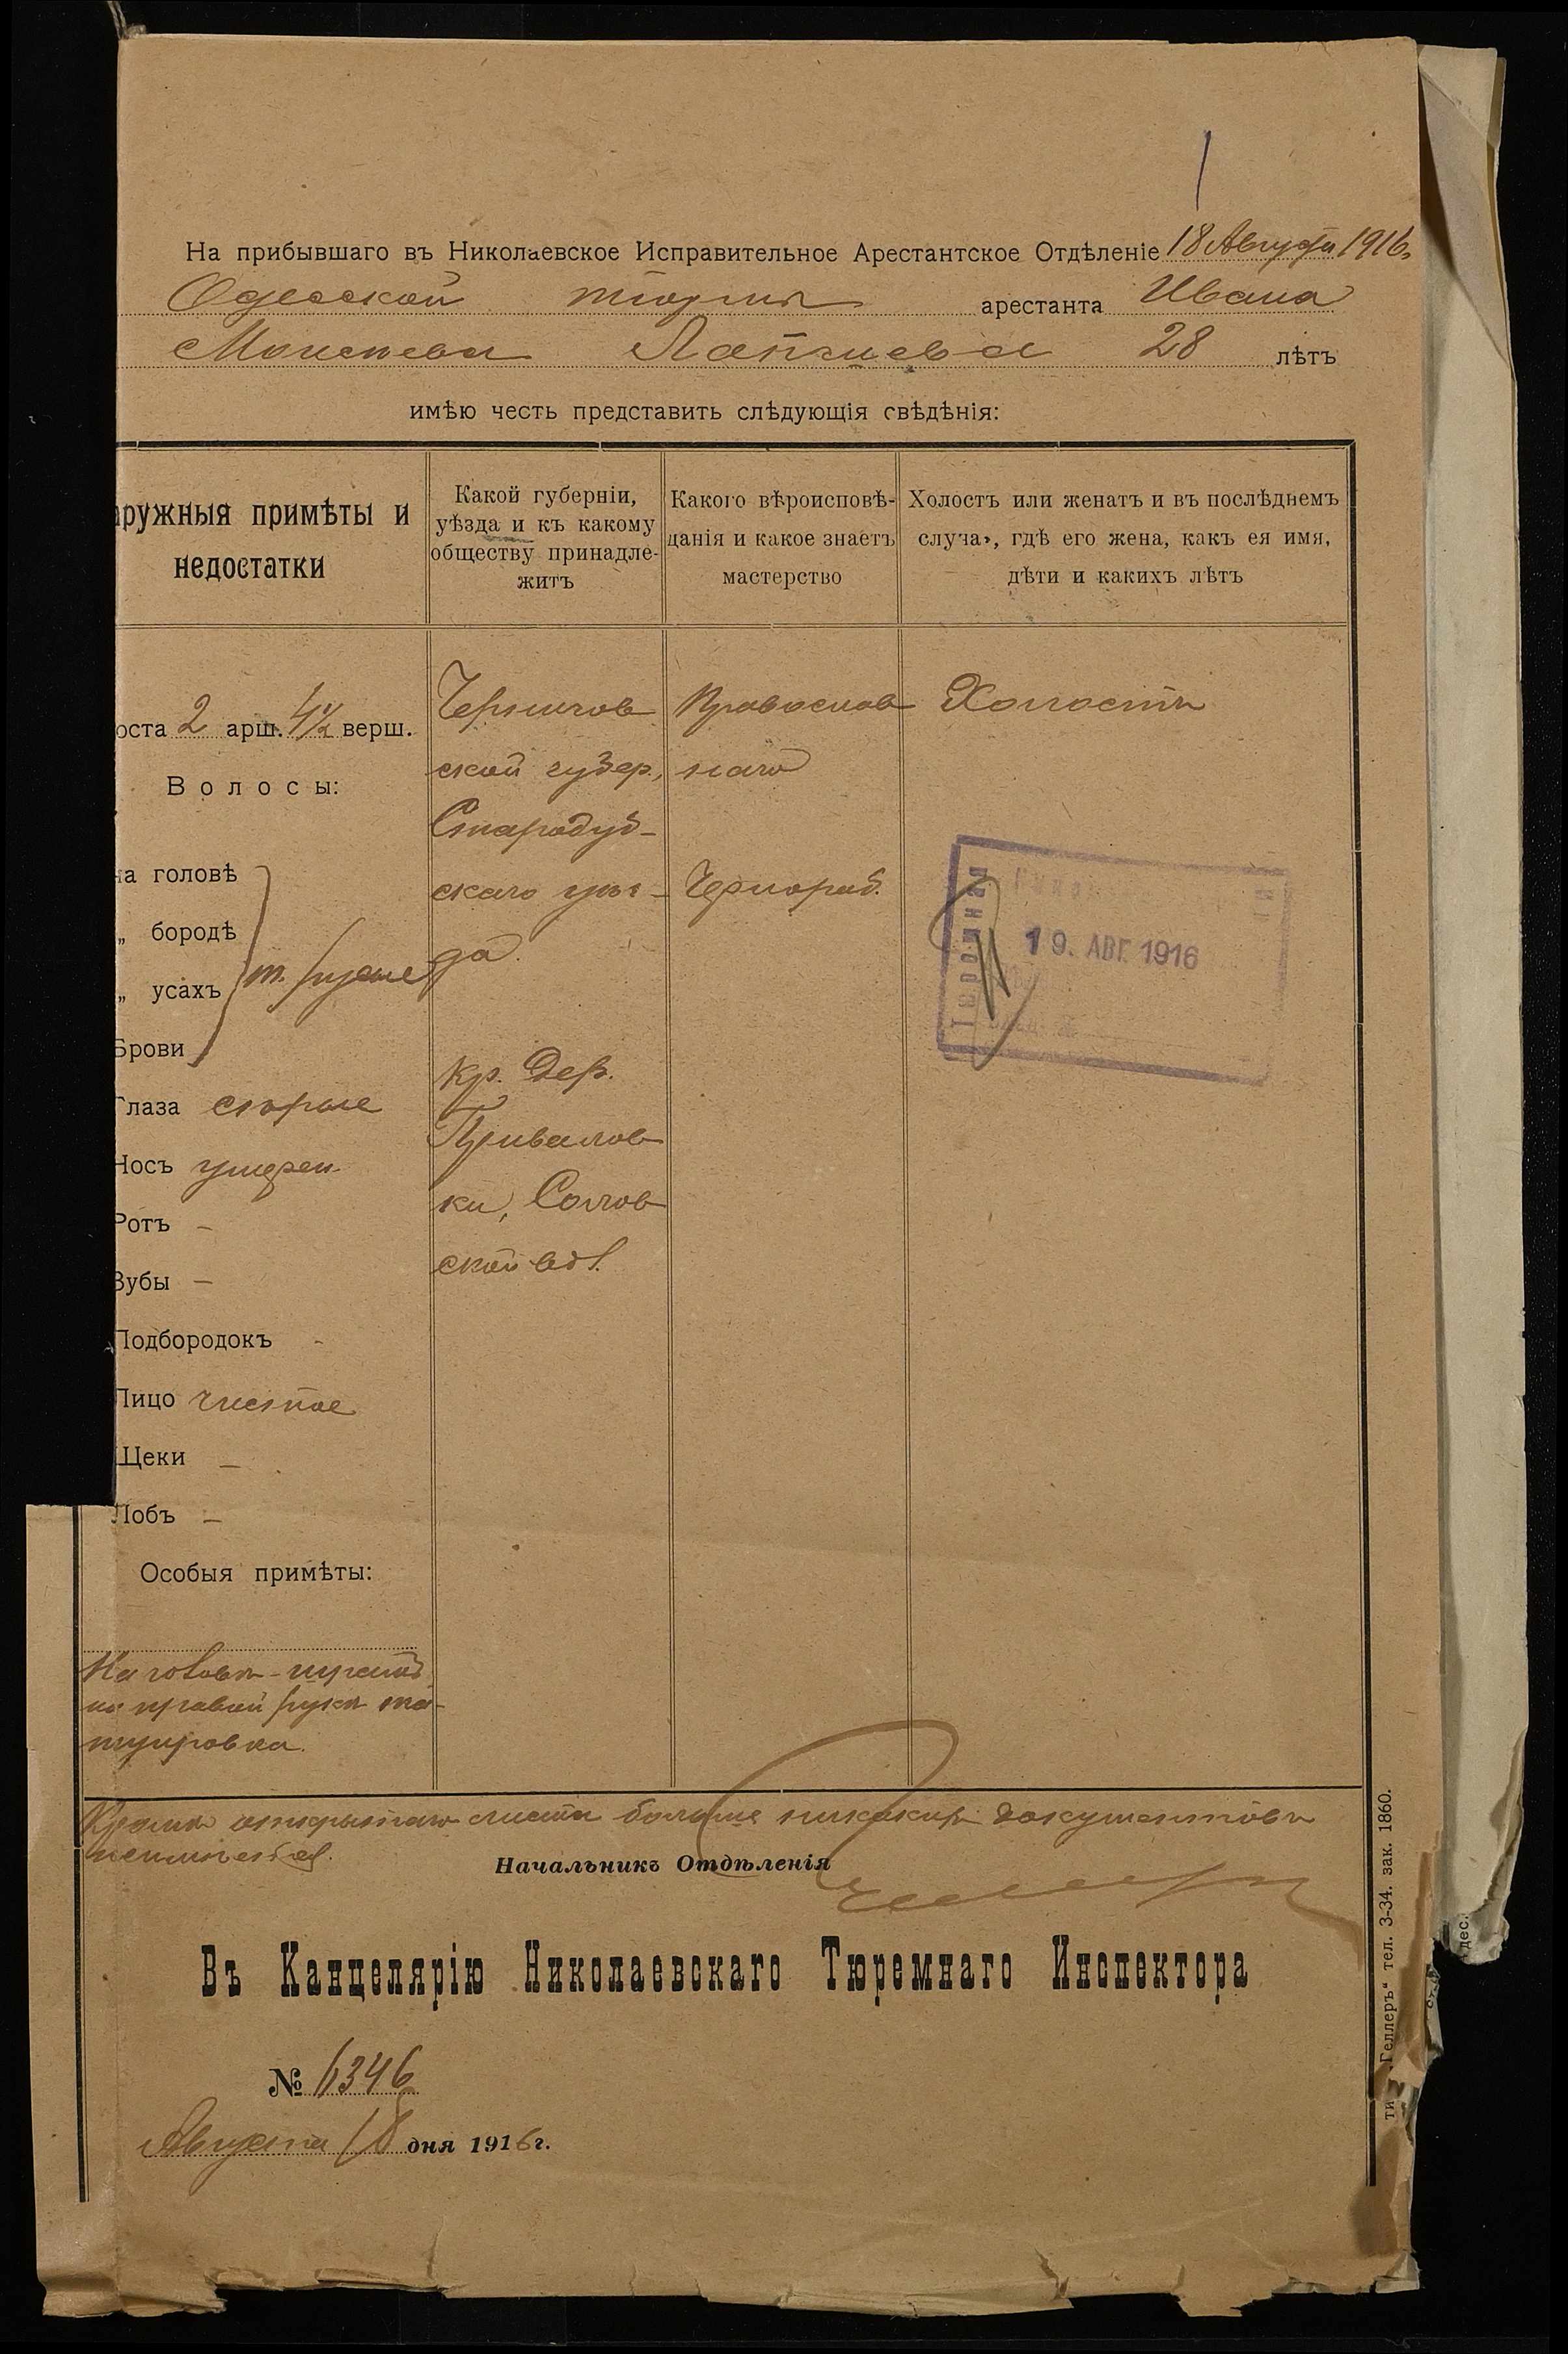 На прибывшаго въ Николаевское Исправительное Арестантское Отдѣленіе 18 Августа 1916
Одесской тюрмы арестанта Ивана
Моисеева Лапчиева 28 лѣтъ
имѣю честь представить слѣдующія свѣдѣнія:
аружныя примѣты и
недостатки
Какой губерніи,
уѣзда и къ какому
обществу принадле-
житъ
Какого вѣроисповѣ-
данія и какое знаетъ
мастерство
Холостъ или женатъ и въ послѣднемъ
случа, гдѣ его жена, какъ ея имя,
дѣти и какихъ лѣтъ
оста 2 арш. 4½ верш.
Волосы:
на головѣ
„ бородѣ
„ усахъ
т. русые
Брови
Глаза сѣрые
Носъ умѣрен.
Ротъ –
Зубы –
Подбородокъ -
Лицо чистое
Щеки –
Лобъ –
Особыя примѣты:
На головѣ - шрамъ
на правой рукѣ та-
туировка.
Чернигов
ской губер.,
Стародуб-
скаго уѣз-
да.
кр. дер.
Привалов
ки, Солов
ской вол.
Православ
наго
Чернораб.
Холостъ
Тюремная
19. АВГ. 1916
Кромѣ открытаго листа больше никакихъ документовъ
неимѣется.
Начальникъ Отдѣленія
Въ Канцелярію Николаевскаго Тюремнаго Инспектора
№ 6346
Августа 18 дня 1916 г.
„Геллеръ“ тел. 3-34. зак. 1860.